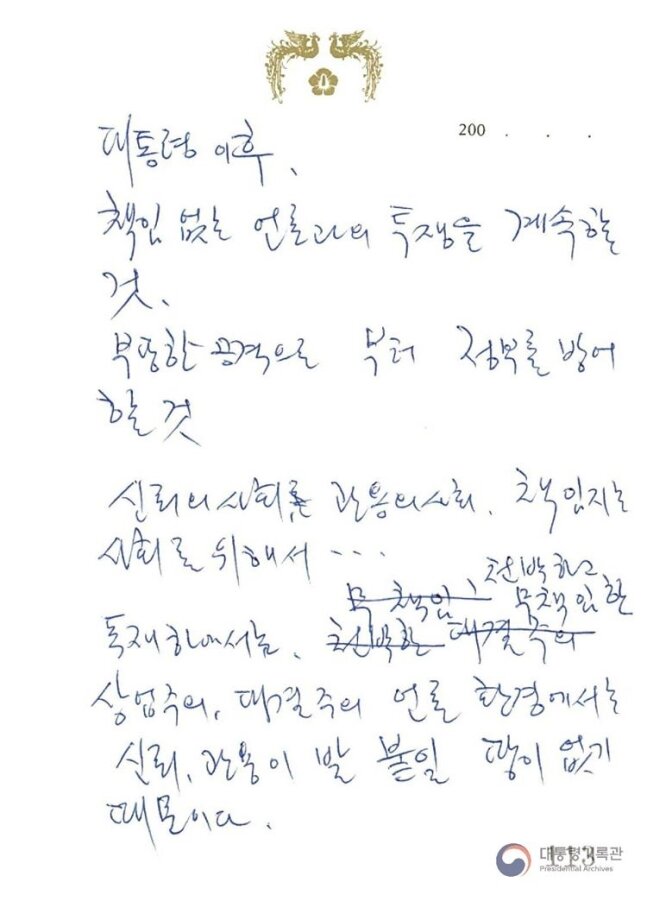 200 . . .
대통령 이후,
책임 없는 언론과의 투쟁을 계속할
것.
부당한 공격으로 부터 정부를 방어
할 것
신뢰의 사회, 관용의 사회, 책임지는
사회를 위해서 ...
무책임, 천박하고
무책임한
독재하에서는, 천박한 대결주의
상업주의, 대결주의 언론 환경에서는
신뢰, 관용이 발 붙일 땅이 없기
때문이다.
113
대통령기록관
Presidential Archives